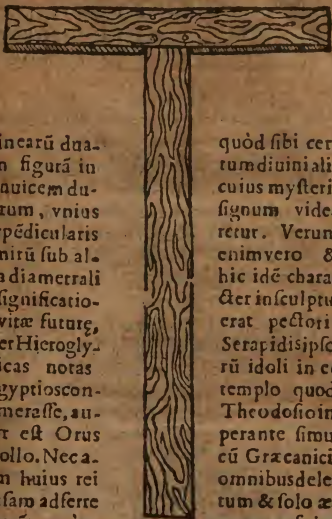 inearũ dua-
n figurã in
nuicem du-
rum, vnius
rpẽdicularis
nirũ sub al-
a diametrali
significatio-
vitæ futuræ,
er Hierogly-
icas notas
gyptios con-
merasse, au-
r est Orus
ollo. Nec a-
m huius rei
usam adferre
quòd sibi cer
tum diuini ali
cuius mysteri
signum vide
retur. Verun
enimvero &
hic idẽ chara
cter insculptu
erat pectori
Serapidis ipso
rũ idoli in eo
templo quod
Theodosio im
perante simu
cũ Græcanici
omnibus dele
tum & solo æ